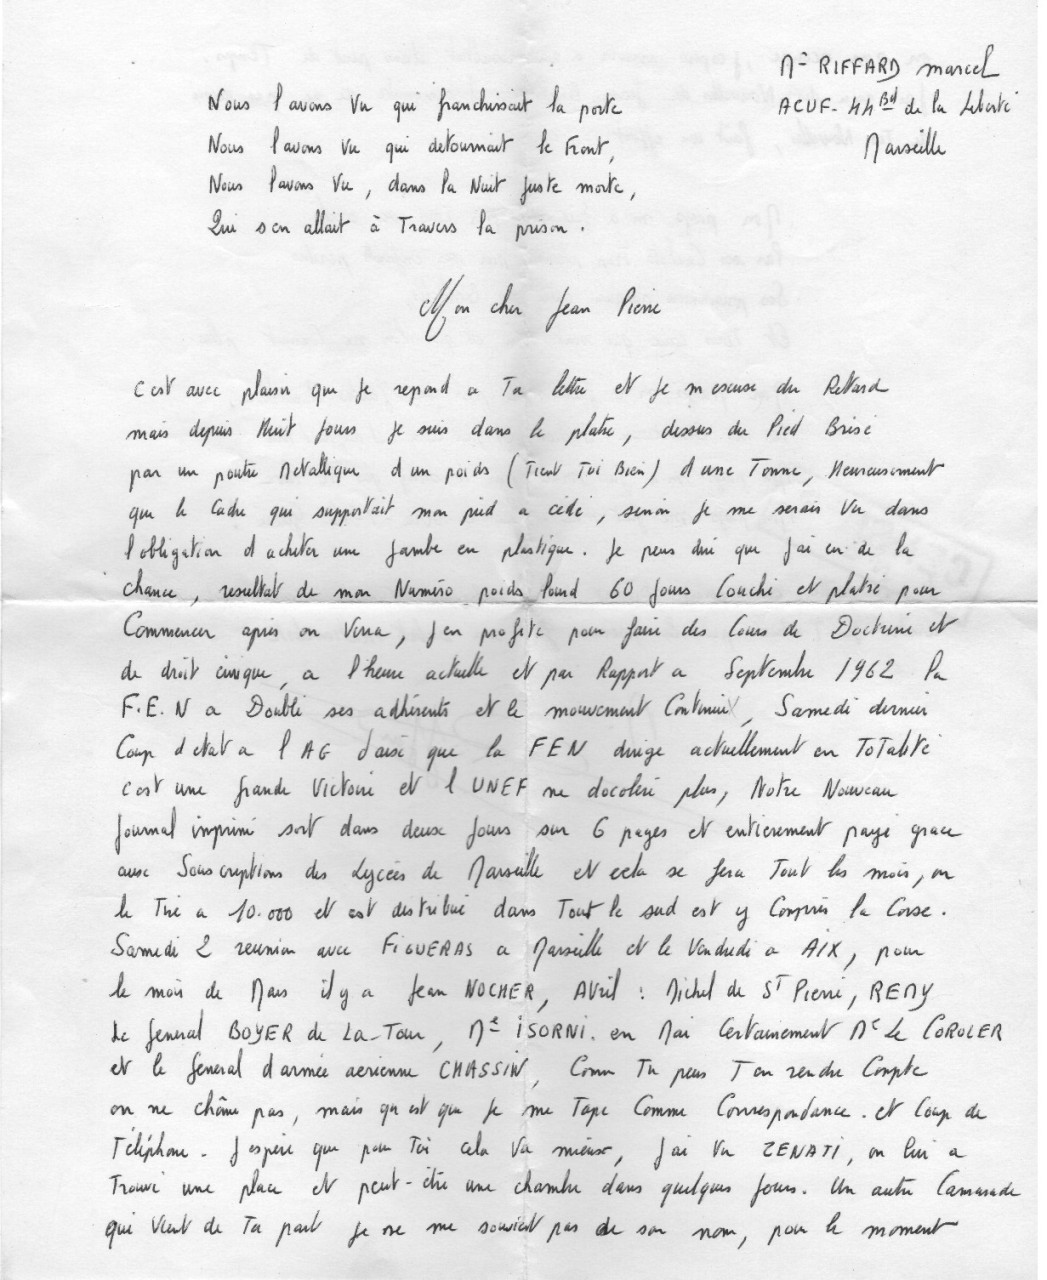 Mr RIFFARD marcel
ACUF - 44 Bd de la Liberté
Marseille
Nous l avons vu qui franchissait la porte
Nous l avons vu qui detournait le Front,
Nous l avons vu, dans la Nuit juste morte,
Qui s en allait à Travers la prison.
Mon cher Jean Pierre
C est avec plaisir que je repond a Ta lettre et je m escuse du Retard
mais depuis Huit jours je suis dans le platre, dessus du Pied Brisé
par un poutre Metallique d un poids (Tient Toi Bien) d une Tonne, Heureusement
que le Cadre qui supportait mon pied a cédé, sinon je me serais vu dans
l obligation d acheter une jambe en plastique. Je peus dire que j ai eu de la
chance, resultat de mon Numéro poids lourd 60 jours Couché et platré pour
Commencer après on Verra, j en profite pour faire des Cours de Doctrine et
de droit civique, a l heure actuelle et par Rapport a Septembre 1962 la
F.E.N a Doublé ses adhérents et le mouvement Continue, Samedi dernier
Coup d etat a l AG d aix que la FEN dirige actuellement en ToTalité
c est une grande Victoire et l UNEF ne docoleré plus, Notre Nouveau
journal imprimé sort dans deux jours sur 6 pages et entierement payé grace
aux Souscriptions des Lycées de Marseille et cela se fera Tout les mois, on
le Tire a 10.000 et est distribué dans Tout le sud est y Compris la Corse.
Samedi 2 reunion avec FIGUERAS a Marseille et le Vendredi a AIX, pour
le mois de Mars il y a Jean NOCHER, AVril : Michel de ST Pierre, REMY
Le general BOYER de La-Tour, Me ISORNI. en Mai Certainement Me Le COROLER
et le general d armée aerienne CHASSIN, Comm Tu peus T en rendre Compte
on ne chôme pas, mais qu est que je me Tape Comme Correspondance. et Coup de
Téléphone. J espère que pour Toi cela Va mieux, j ai Vu ZENATI, on lui a
Trouvé une place et peut-être une chambre dans quelques jours. Un autre Camarade
qui Vient de Ta part je ne me souvient pas de son nom, pour le moment